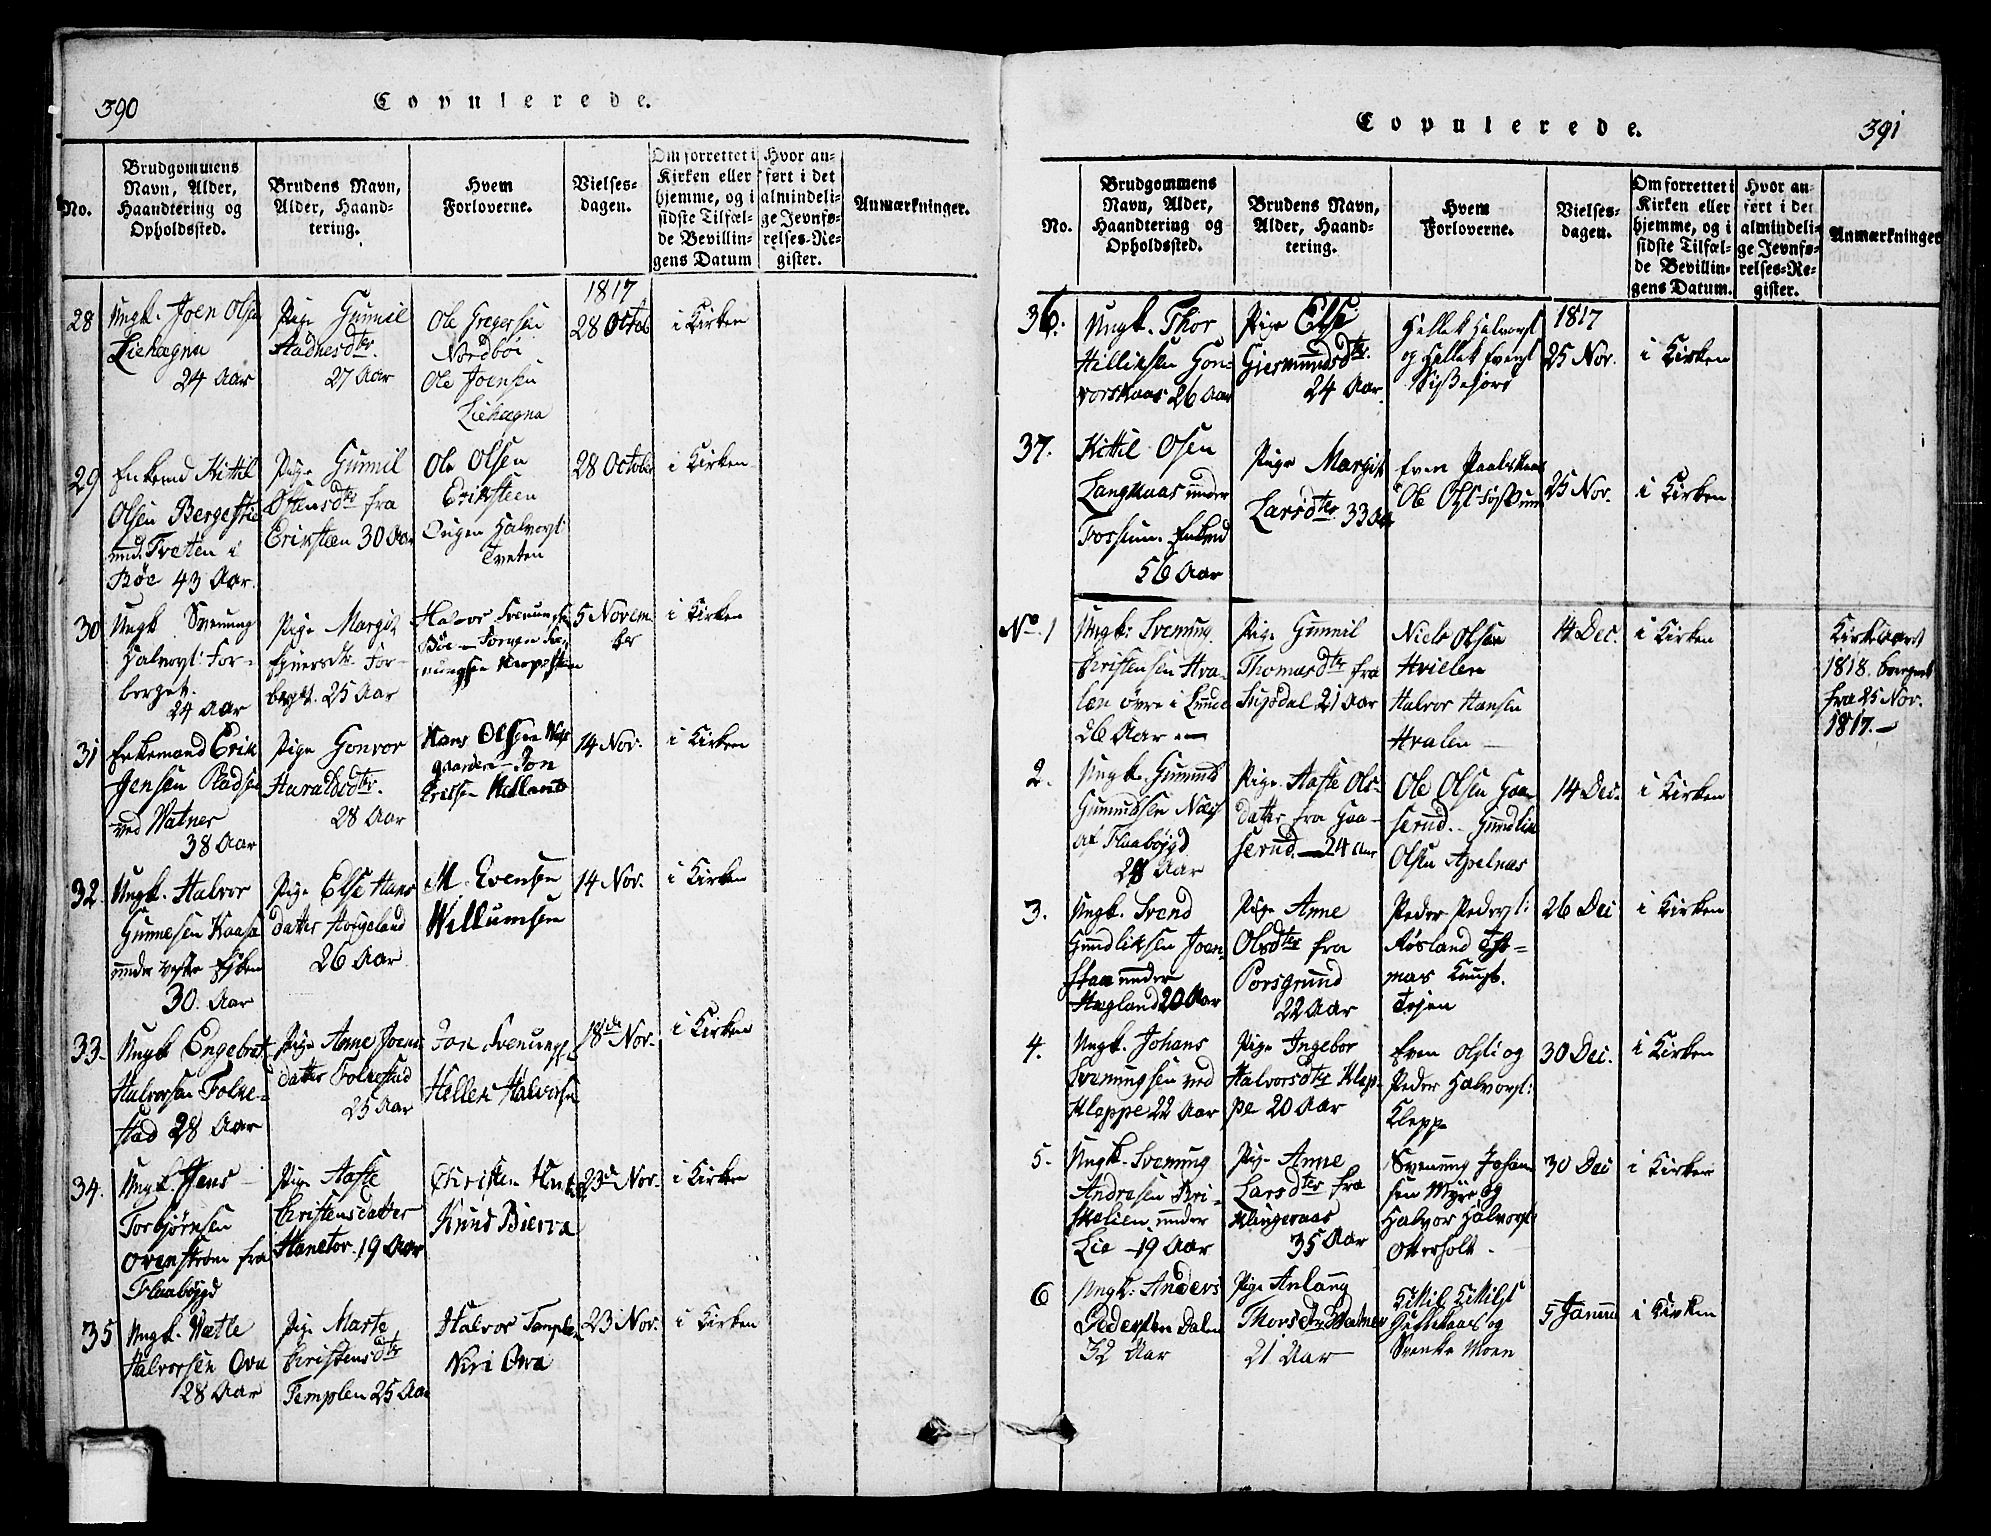 390
Copulerede.
No.
Brudgommens
Navn, Alder,
Haandtering og
Opholdssted.
Brudens Navn,
Alder, Haand-
tering.
Hvem
Forloverne.
Vielses-
dagen.
Om forrettet i
Kirken eller
hjemme, og i
sidste Tilfæl-
de Bevillin-
gens Datum
Hvor an-
ført i det
almindeli-
ge Jevnfø-
relses-Re-
gister.
Anmærkninger.
1817
28
Ungk. Joen Olsen
Liehægna
24 Aar
Pige Gunnil
Aadnesdtr.
27 Aar
Ole Gregersen
Nordbøe
Ole Joensen
Liehægna
28 Octob
i Kirken
29
Enkemd Kittil
Olsen Bergestie
und. Tveten i
Bøe 43 Aar.
Pige Gunnil
Ostensdtr fra
Eriksteen 30 Aar
Ole Olsen
Eriksteen
Halvorsl:
Tveten
28 October
i Kirken
30
Ungk Svenung
Halvorsl: For-
berget.
24 Aar
Pige Margit
Forberget. 25 Aar
Halvor Svenungsen
Bøe
5 Novem
ber
i Kirken
31
Enkemand Erik
Jensen Pladsen
ved Vatner
38 Aar
Pige Gonvor
Haraldsdtr.
28 Aar
Hans Olsen
gaarden - Jon
14 Nov.
i Kirken
32.
Ungk. Halvor
Gunnesen Kaasa
under
30. Aar
Pige Else Hans
datter Haugeland
26 Aar
M. Evensen
Willumsen
14 Nov.
i Kirken
33.
Ungk Engebret
Halvorsen Folke-
stad 28 Aar
Pige Anne Joens
datter Folkestad
25 Aar
Jon Svenungsl.
Hellek Halvorsen
18de Nov.
i Kirken
34.
Ungk. Jens
Torbjørnsen
Ovenstrøm fra
Flaabøygd
Pige Aaste
Christensdatter
Hanetor. 19 Aar
Christen
Knud Bierva
23d Nov.
i Kirken
35
Ungk. Vætle
Halvorsen Ova
28 Aar
Pige Marte
Christensdtr
Templen 25 Aar
Halvor Templen
Niri Ova
23 Nov.
i Kirken
Copulerede.
391
No.
Brudgommens
Navn, Alder,
Haandtering og
Opholdssted.
Brudens Navn,
Alder, Haand-
tering.
Hvem
Forloverne.
Vielses-
dagen.
Om forrettet i
Kirken eller
hjemme, og i
sidste Tilfæl-
de Bevillin-
gens Datum.
Hvor an-
ført i det
almindeli-
ge Jevnfø-
relses-Re-
gister.
Anmærkninger
36.
Ungk. Thor
Helliksen Gon-
vorskaas 26 Aar
Pige Else
Giermundsdtr.
24 Aar.
Hellek Halvorsl
og Hellek Evensl
1817
25 Nov.
i Kirken
37.
Kittil Osen
Langkaas under
Fossum. Enkemd
56 Aar
Pige Margit
Larsdtr. 33 Aar
Even
Ole Olsl
25 Nov.
i Kirken
No. 1
Ungk: Svenung
Christensen Hva-
len øvre i Lunde
26 Aar
Pige Gunnil
Thomasdtr fra
21 Aar
Niels Olsen
Hvielen
Halvor Hansen
Hvalen
14 Dec.
i Kirken
Kirkeaaret
1818. beregnet
fra 25 Nov.
1817.
2.
Ungk. Gunmund
Gunmundsen Næs
af Flaabøygd
28 Aar
Pige Aaste Ols-
datter fra Haa-
serud. 24 Aar
Ole Olsen Haa-
serud. Gundlik
Olsen Apelnæs
14 Dec.
i Kirken
3.
Ungk. Svend
Gundliksen Joen-
staa under
Hægland 20 Aar
Pige Anne
Olsdtr fra
Porsgrund
22 Aar
Peder Pedersl:
Røsland
26 Dec
i Kirken
4.
Ungk. Johans
Svenungsen ved
Kleppe 22 Aar
Pige Ingebor
Halvorsdtr Klep-
pe 20 Aar
Even Olsl: og
Peder Halvorsl:
Klepp
30 Dec.
i Kirken
5.
Ungk. Svenung
Andresen Bri-
skelien under
Lie 19 Aar
Pige Anne
Larsdtr fra
Klingeraas
35 Aar
Svenung Johan-
sen Myre og
Halvor Halvorsl:
Otterholt.
30 Dec
i Kirken
6
Ungk: Anders
Pedersen Dalen
32 Aar
Pige Anlaug
Thorsdtr Vatner
21 Aar
Kittil Kittilsl
og
Svenke Moen
5 Januar
i Kirken